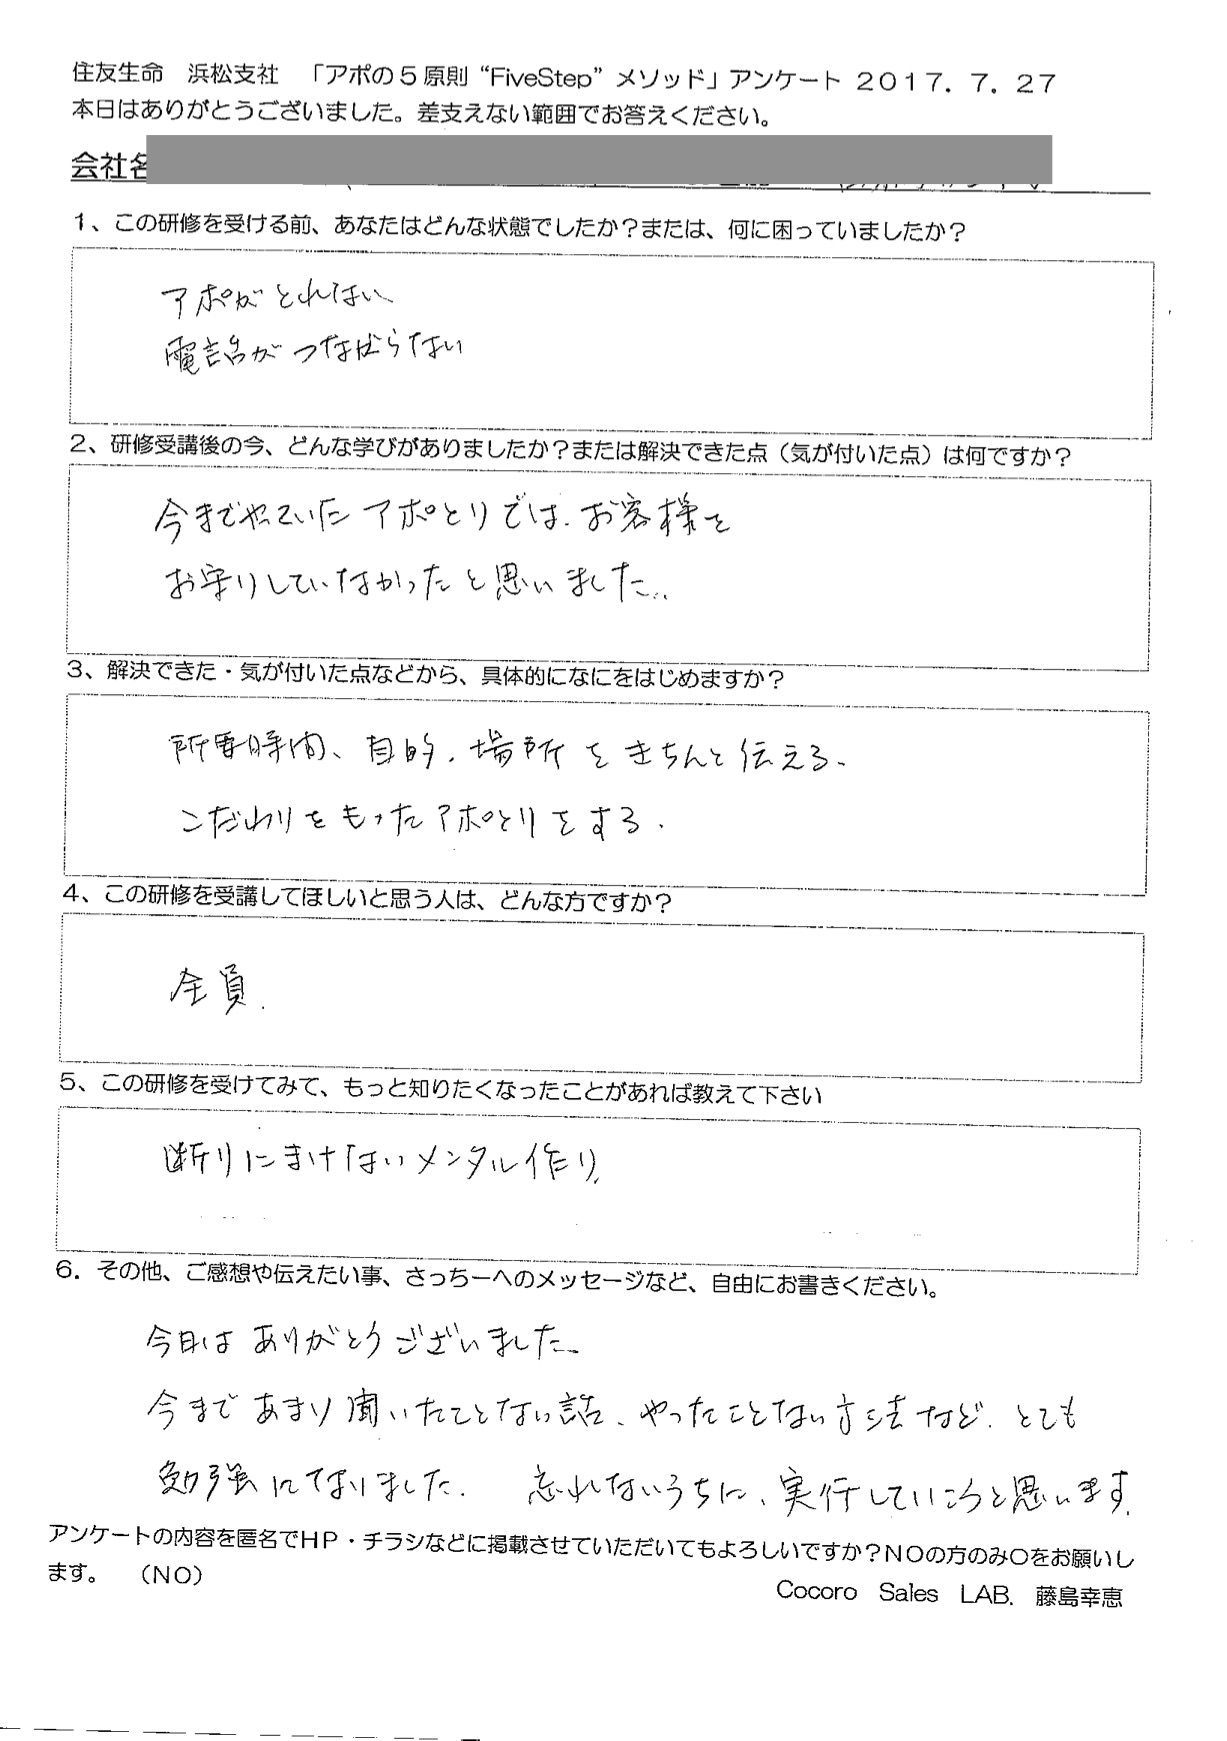 住友生命　浜松支社　「アポの５原則“FiveStep”メソッド」アンケート ２０１７．７．２７
本日はありがとうございました。差支えない範囲でお答えください。
会社名
１、この研修を受ける前、あなたはどんな状態でしたか？または、何に困っていましたか？
アポがとれない
電話がつながらない
２、研修受講後の今、どんな学びがありましたか？または解決できた点（気が付いた点）は何ですか？
今までやっていたアポとりでは、お客様を
お守りしていなかったと思いました。
３、解決できた・気が付いた点などから、具体的になにをはじめますか？
所要時間、目的、場所をきちんと伝える。
こだわりをもったアポとりをする。
４、この研修を受講してほしいと思う人は、どんな方ですか？
全員。
５、この研修を受けてみて、もっと知りたくなったことがあれば教えて下さい
断りにまけないメンタル作り。
６．その他、ご感想や伝えたい事、さっちーへのメッセージなど、自由にお書きください。
今日はありがとうございました。
今まであまり聞いたことない話、やったことない方法など、とても
勉強になりました。 忘れないうちに、実行していこうと思います。
アンケートの内容を匿名でＨＰ・チラシなどに掲載させていただいてもよろしいですか？ＮＯの方のみ○をお願いし
ます。　（ＮＯ）
Cocoro　Sales　LAB.　藤島幸恵